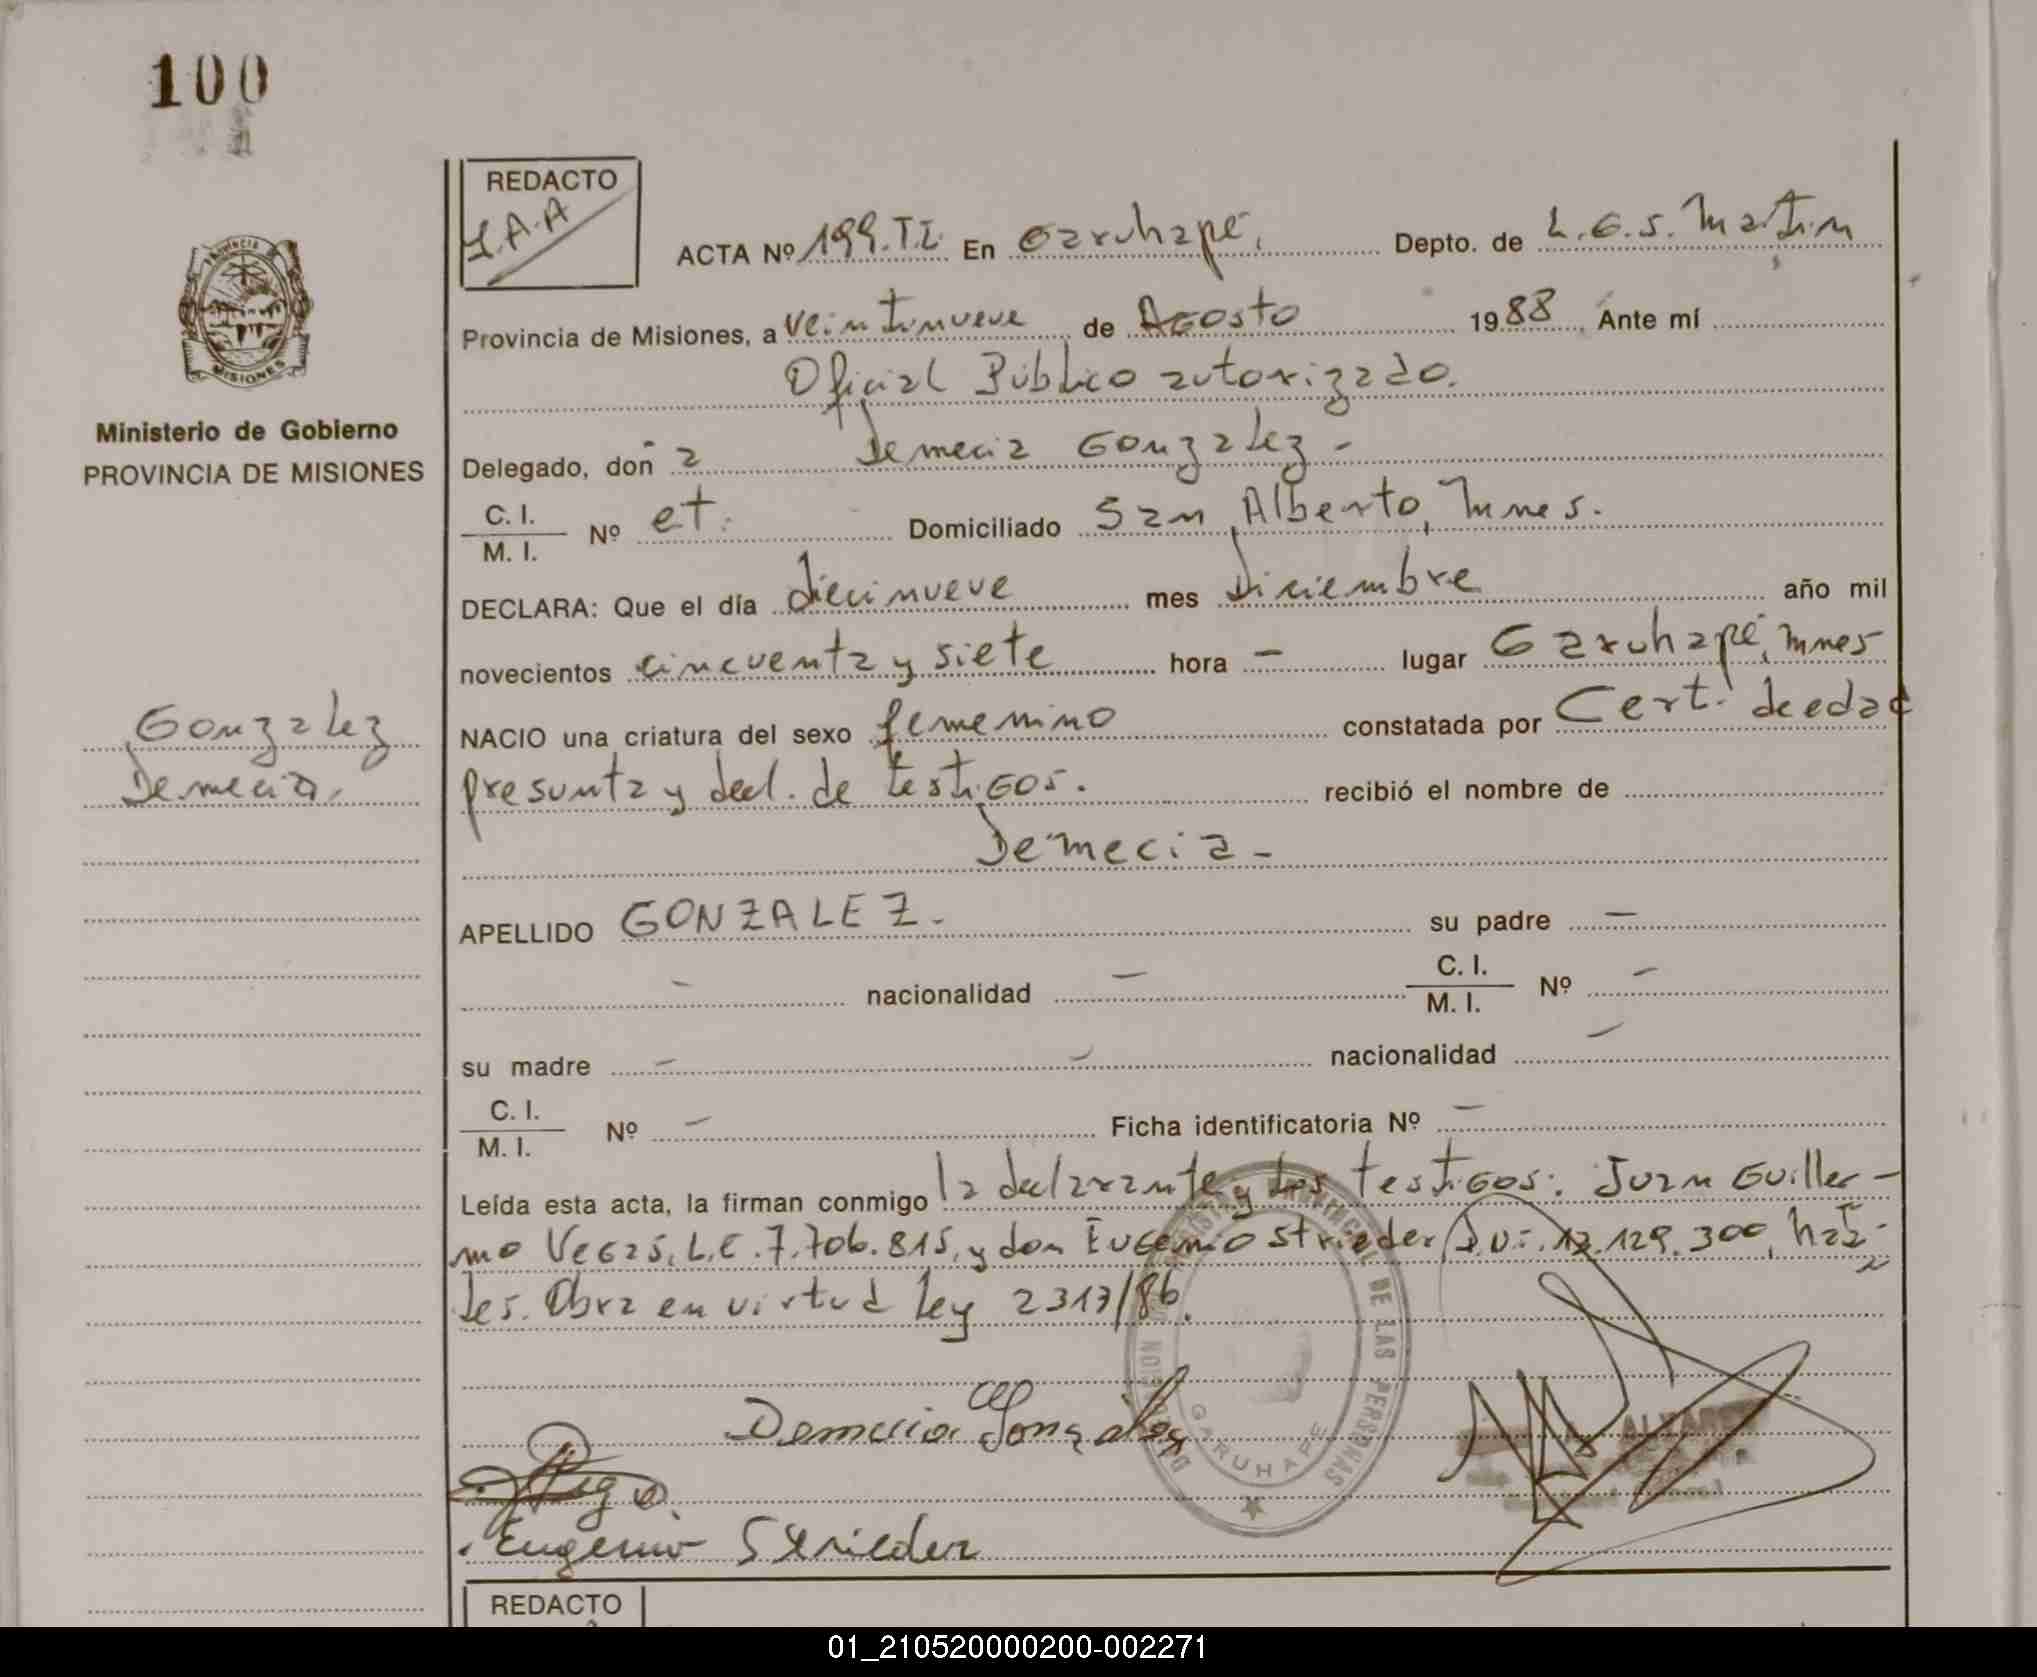 100
REDACTO
ACTA Nº 199.T.I. En Garuhapé, Depto. de L.G.S. Martin
Provincia de Misiones, a veintinueve de Agosto 1988 Ante mí
Oficial Público autorizado.
PROVINCIA DE MISIONES
Ministerio de Gobierno
PROVINCIA DE MISIONES
Delegado, don a Demecia Gonzalez -
C. I. / M. I. Nº et. Domiciliado San Alberto, Mnes.
DECLARA: Que el día diecinueve mes Diciembre año mil
novecientos cincuenta y siete hora - lugar Garuhapé, Mnes
NACIO una criatura del sexo femenino constatada por Cert. de edad
presunta y decl. de testigos. recibió el nombre de
Demecia -
Gonzalez
Demecia.
APELLIDO GONZALEZ. su padre -
- nacionalidad - C. I. / M. I. Nº -
su madre - - nacionalidad -
C. I. / M. I. Nº - Ficha identificatoria Nº -
Leída esta acta, la firman conmigo la declarante y los testigos: Juan Guiller-
mo Vegas, L.E. 7.706.815, y don Eugenio Strieder, 129.300,
les. Obra en virtud Ley 2317/86.
DE LAS PERSONAS
GARUHAPE
Demecia Gonzalez
Eugenio Strieder
REDACTO
01_210520000200-002271